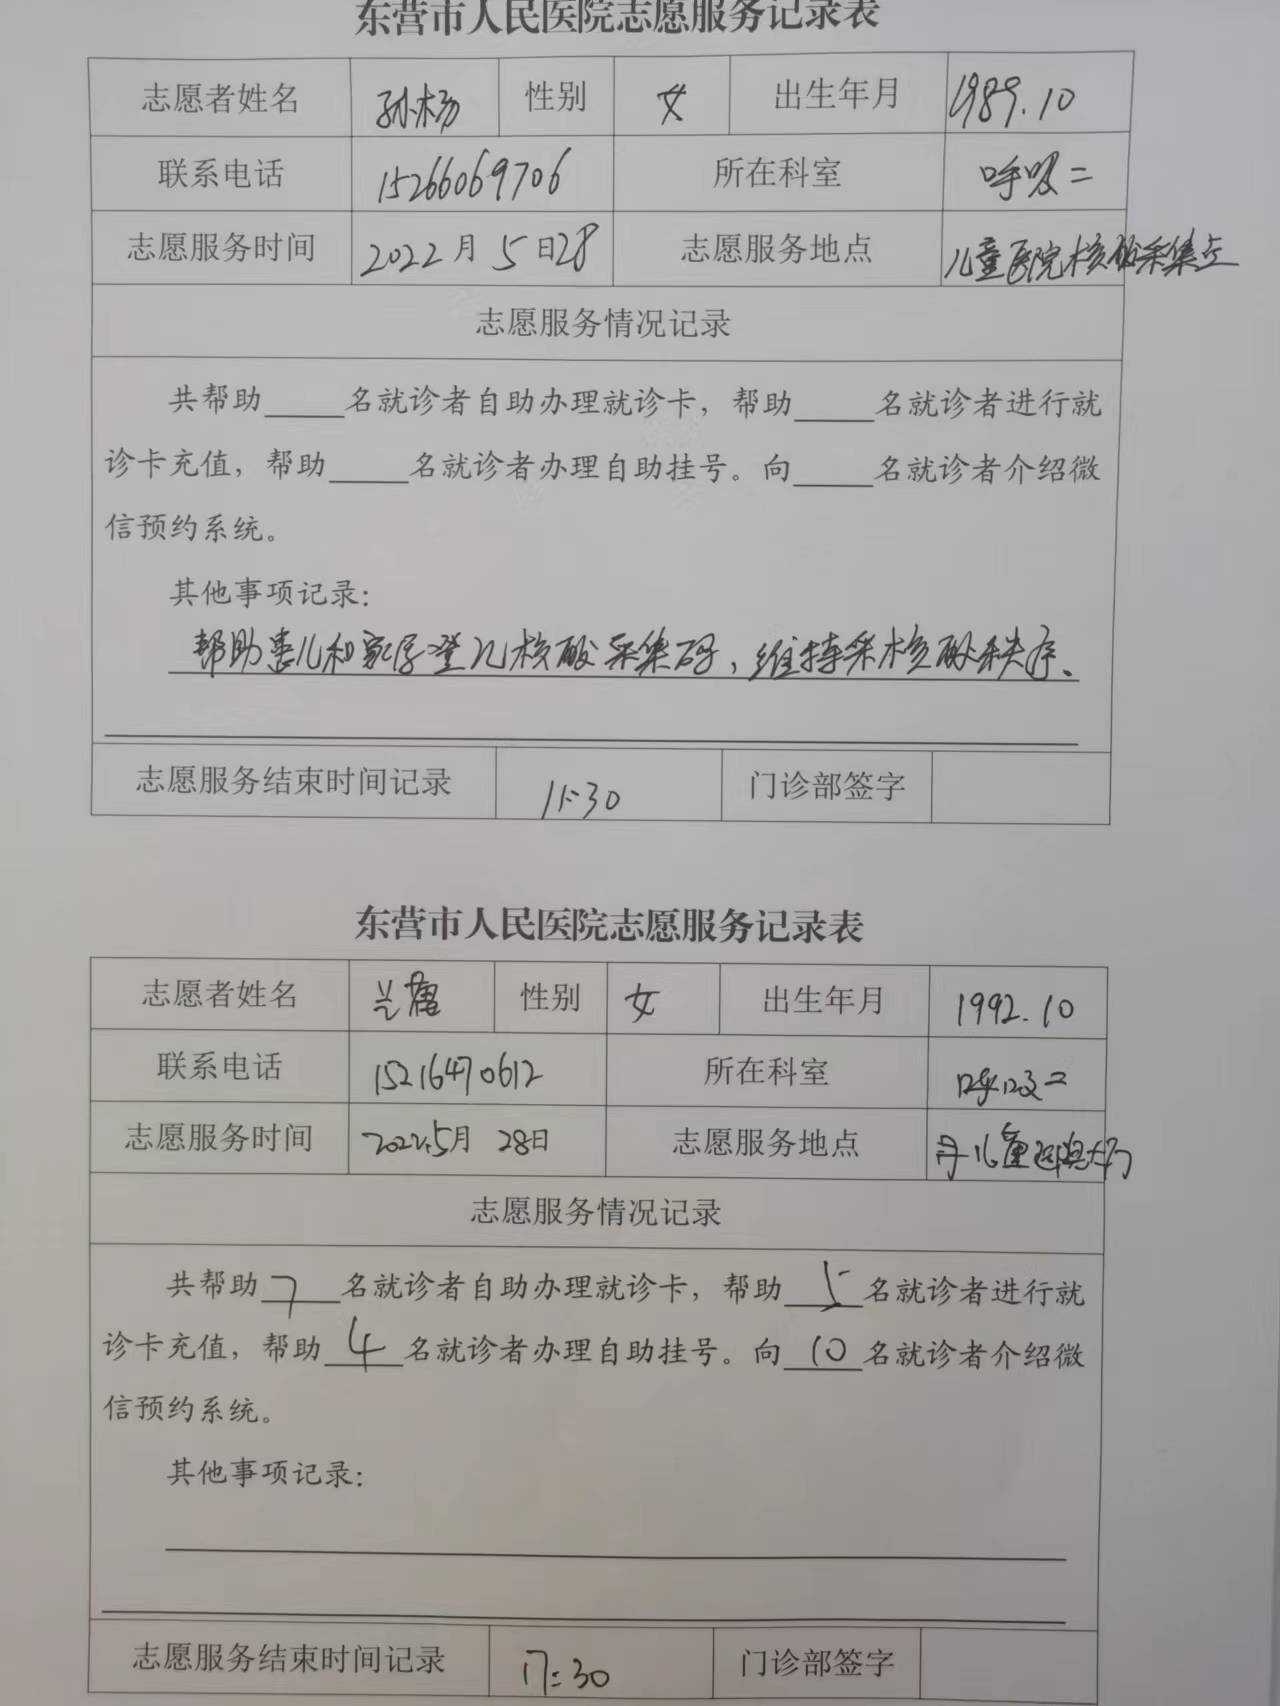 东营市人民医院志愿服务记录表
志愿者姓名 孙杨 性别 女 出生年月 1989.10
联系电话 15266069706 所在科室 呼吸二
志愿服务时间 2022月5日28 志愿服务地点 儿童医院核酸采集点
志愿服务情况记录
共帮助____名就诊者自助办理就诊卡，帮助____名就诊者进行就
诊卡充值，帮助____名就诊者办理自助挂号。向____名就诊者介绍微
信预约系统。
其他事项记录：
帮助患儿和家属登记核酸采集码、维持采核酸秩序、
志愿服务结束时间记录 11:30 门诊部签字
东营市人民医院志愿服务记录表
志愿者姓名 性别 女 出生年月 1992.10
联系电话 15216470612 所在科室 呼吸二
志愿服务时间 2022.5月 28日 志愿服务地点
志愿服务情况记录
共帮助 7 名就诊者自助办理就诊卡，帮助 5 名就诊者进行就
诊卡充值，帮助 4 名就诊者办理自助挂号。向 10 名就诊者介绍微
信预约系统。
其他事项记录：
志愿服务结束时间记录 17:30 门诊部签字